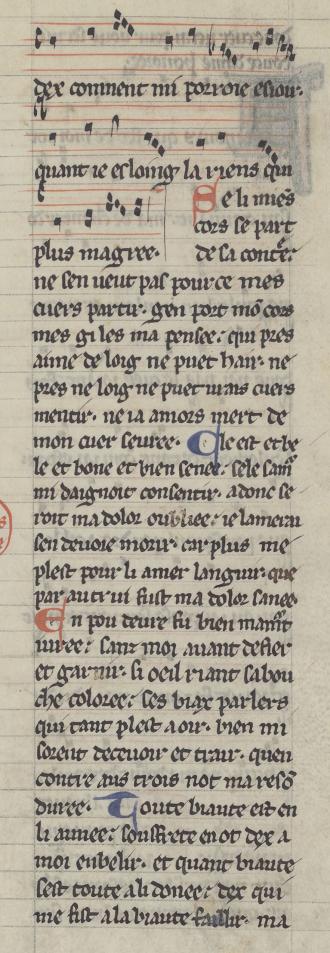 dex comment mi porroie esioir.
quant ie esloing la riens qui
plus magree.
Se li miēs
cors se part
de sa contē:
ne sen ueut pas pource mes
cuers partir. gen port mō cors
mes gi les ma pensee: qui pres
aime de loig ne puet hair. ne
pres ne loig ne puet urais cuers
mentir. ne ia amors niert de
mon cuer seuree. Cle est et be
le et bone et bien senee. sele
mi daignoit consentir. adonc se
roit ma dolor oubliee: ie lamerai
sen deuoie morir. car plus me
plest pour li amer languir. que
par autrui fust ma dolor sanee.
En pou deure fu bien
uiree: sanz moi auant defier
et garnir. si oeil riant sa bou
che coloree: ses biax parlers
qui tant plest a oir. bien mi
sorent deceuoir et trair. quen
contre aus trois not ma resō
duree. Toute biaute est en
li aunee: souffrete en ot dex a
moi enbelir. et quant biaute
sest toute a li donee: dex qui
me fist a la biaute faillir. ma